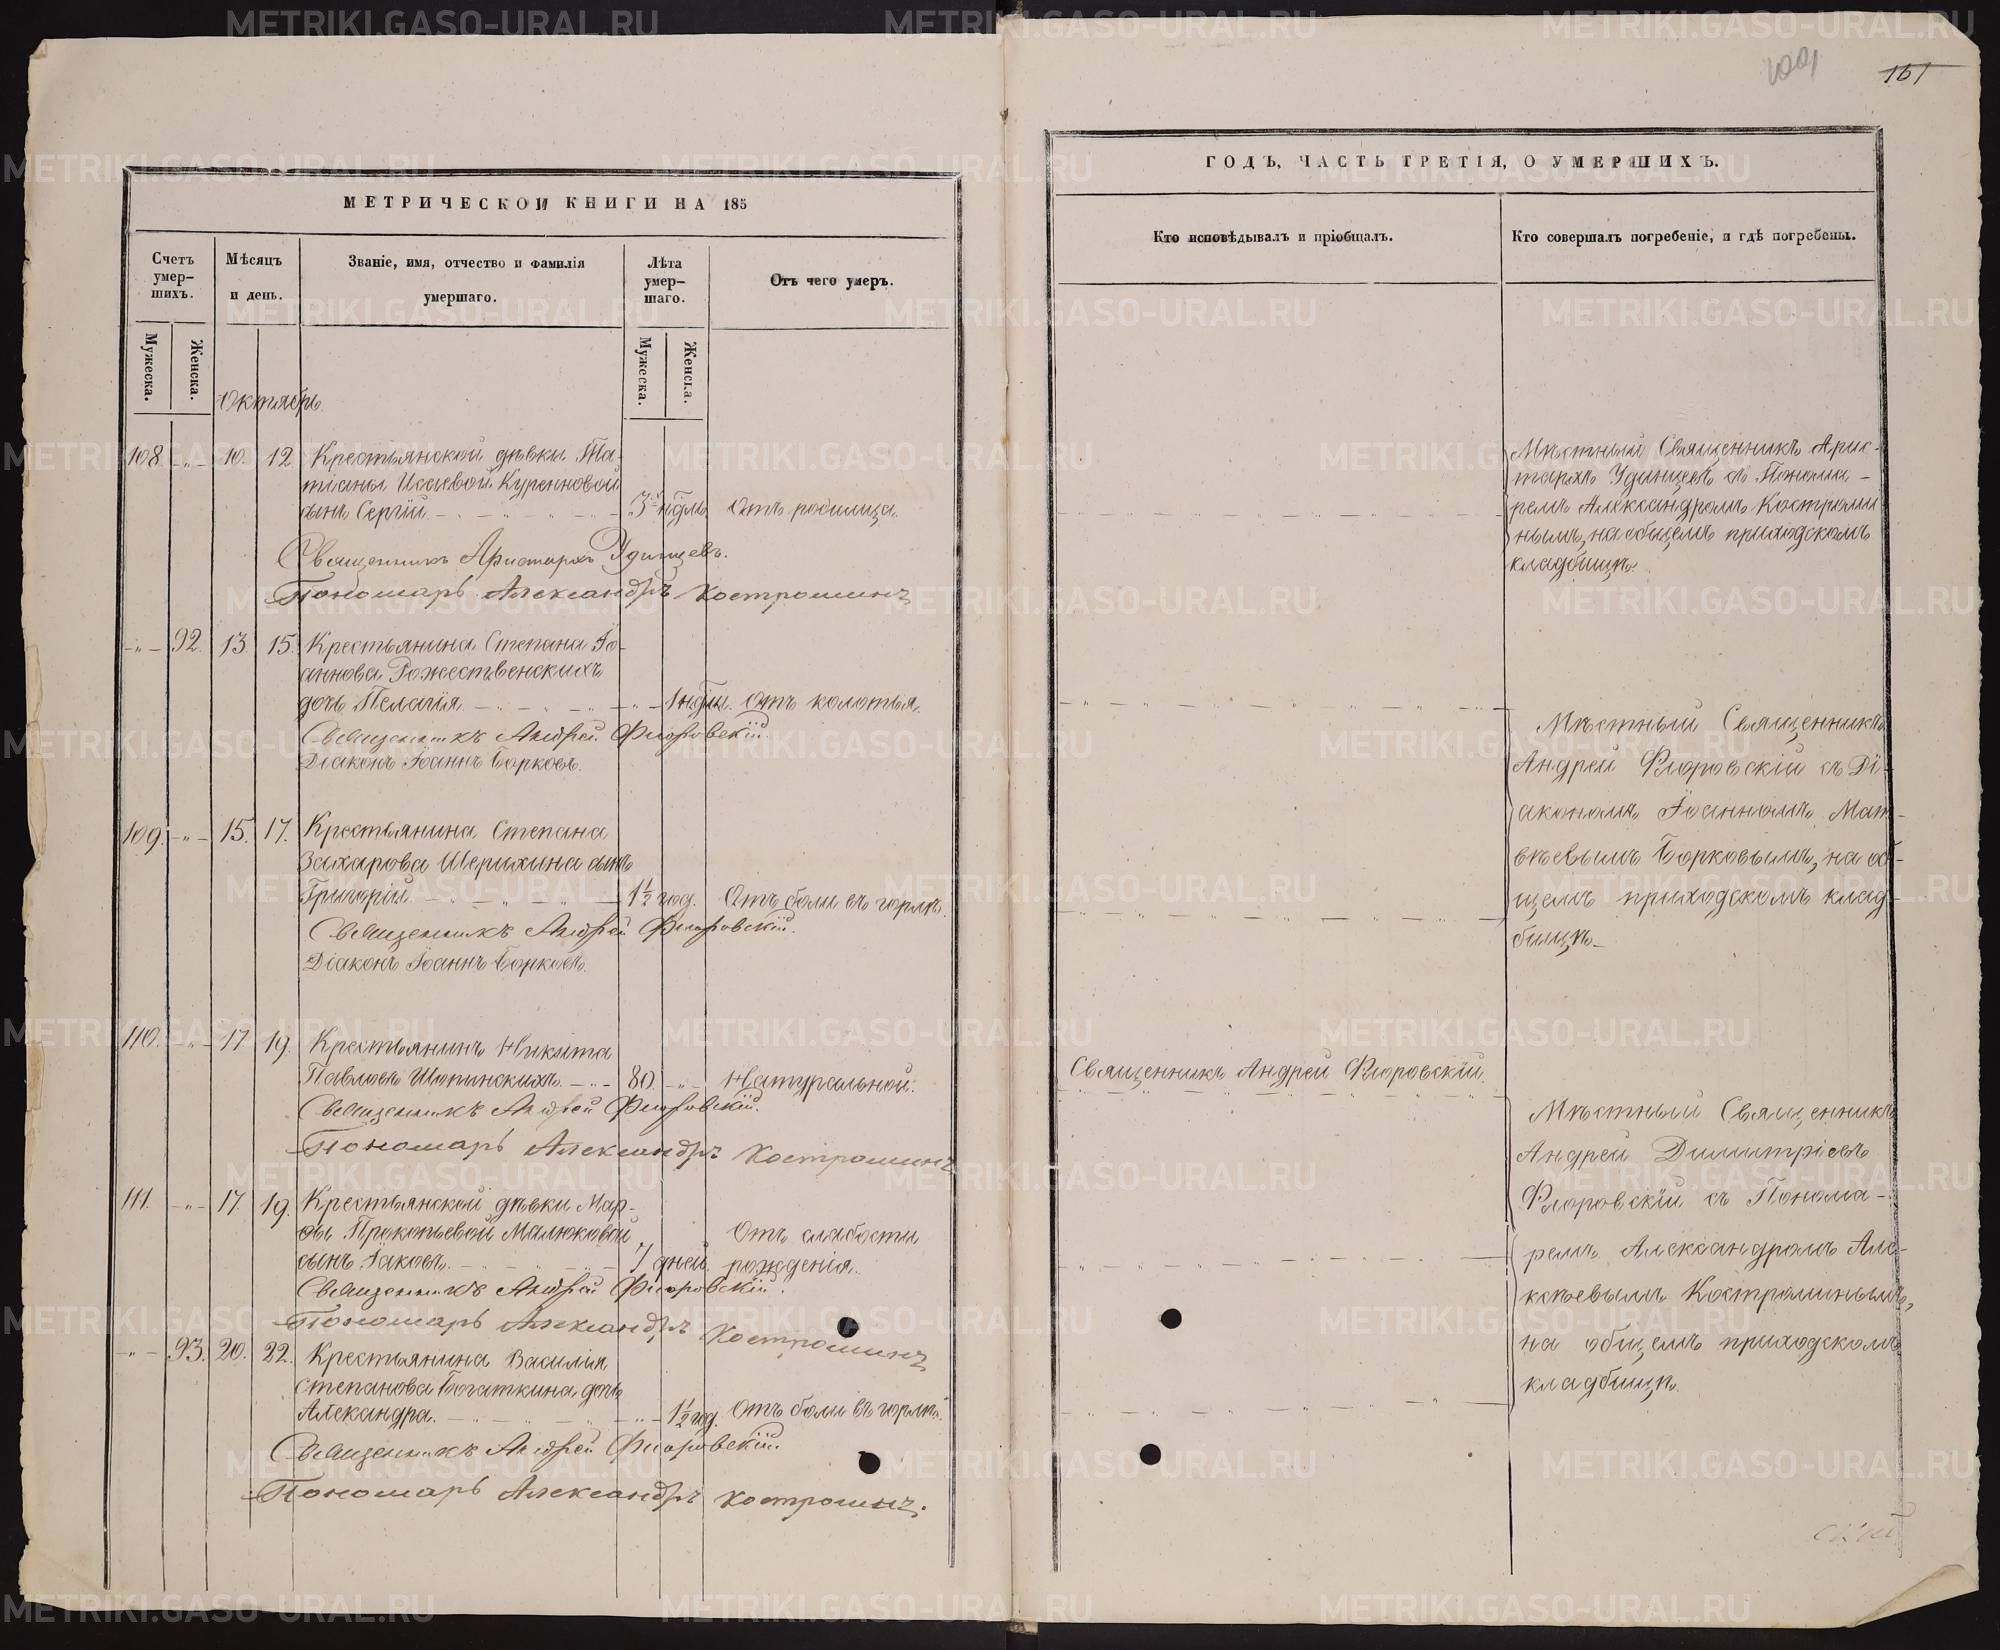 161
МЕТРИЧЕСКОЙ КНИГИ НА 185
Счетъ умер- шихъ.
Мѣсяцъ и день.
Званіе, имя, отчество и фамилія умершаго.
Лѣта умер- шаго.
Отъ чего умеръ.
Мужеска.
Женска.
Мужеска.
Женска.
Октябрь
108. -"- 10. 12. Крестьянской дѣвки Та-
тіаны Исаевой Куренновой
сынъ Сергій. 3 нѣдль. Отъ родимца.
Священникъ Аристархъ Удинцевъ.
Пономарь Александръ Костроминъ
-"- 92. 13. 15. Крестьянина Степана Іо-
аннова Рожественскихъ
дочь Пелагія. -"- 1 нѣдли. Отъ колотья.
Священникъ Андрей Флоровскій.
Діаконъ Іоаннъ Борковъ.
109. -"- 15. 17. Крестьянина Степана
Захарова Шерихина сынъ
Григорій. 1½ год. Отъ боли въ горлѣ.
Священникъ Андрей Флоровскій.
Діаконъ Іоаннъ Борковъ.
110. -"- 17. 19. Крестьянинъ Никита
Павловъ Шопинскихъ. 80. -"- Натуральной.
Священникъ Андрей Флоровскій.
Пономарь Александръ Костроминъ
111. -"- 17. 19. Крестьянской дѣвки Мар-
ѳы Прокопьевой Малюковой
сынъ Іаковъ. 7 дней. Отъ слабости рожденія.
Священникъ Андрей Флоровскій.
Пономарь Александръ Костроминъ
-"- 93. 20. 22. Крестьянина Василія
Степанова Богаткина дочь
Александра. -"- 1½ год. Отъ боли въ горлѣ.
Священникъ Андрей Флоровскій.
Пономарь Александръ Костроминъ.
ГОДЪ, ЧАСТЬ ТРЕТІЯ, О УМЕРШИХЪ.
Кто исповѣдывалъ и пріобщалъ.
Кто совершалъ погребеніе, и гдѣ погребены.
Мѣстный Священникъ Арис-
тархъ Удинцевъ съ Понома-
ремъ Александромъ Костроми-
нымъ, на общемъ приходскомъ
кладбищѣ.
Мѣстный Священникъ
Андрей Флоровскій съ Ді-
акономъ Іоанномъ Мат-
вѣевымъ Борковымъ, на об-
щемъ приходскомъ клад-
бищѣ.
Священникъ Андрей Флоровскій.
Мѣстный Священникъ
Андрей Димитріевъ
Флоровскій съ Понома-
ремъ Александромъ Але-
ксѣевымъ Костроминымъ,
на общемъ приходскомъ
кладбищѣ.
METRIKI.GASO-URAL.RU